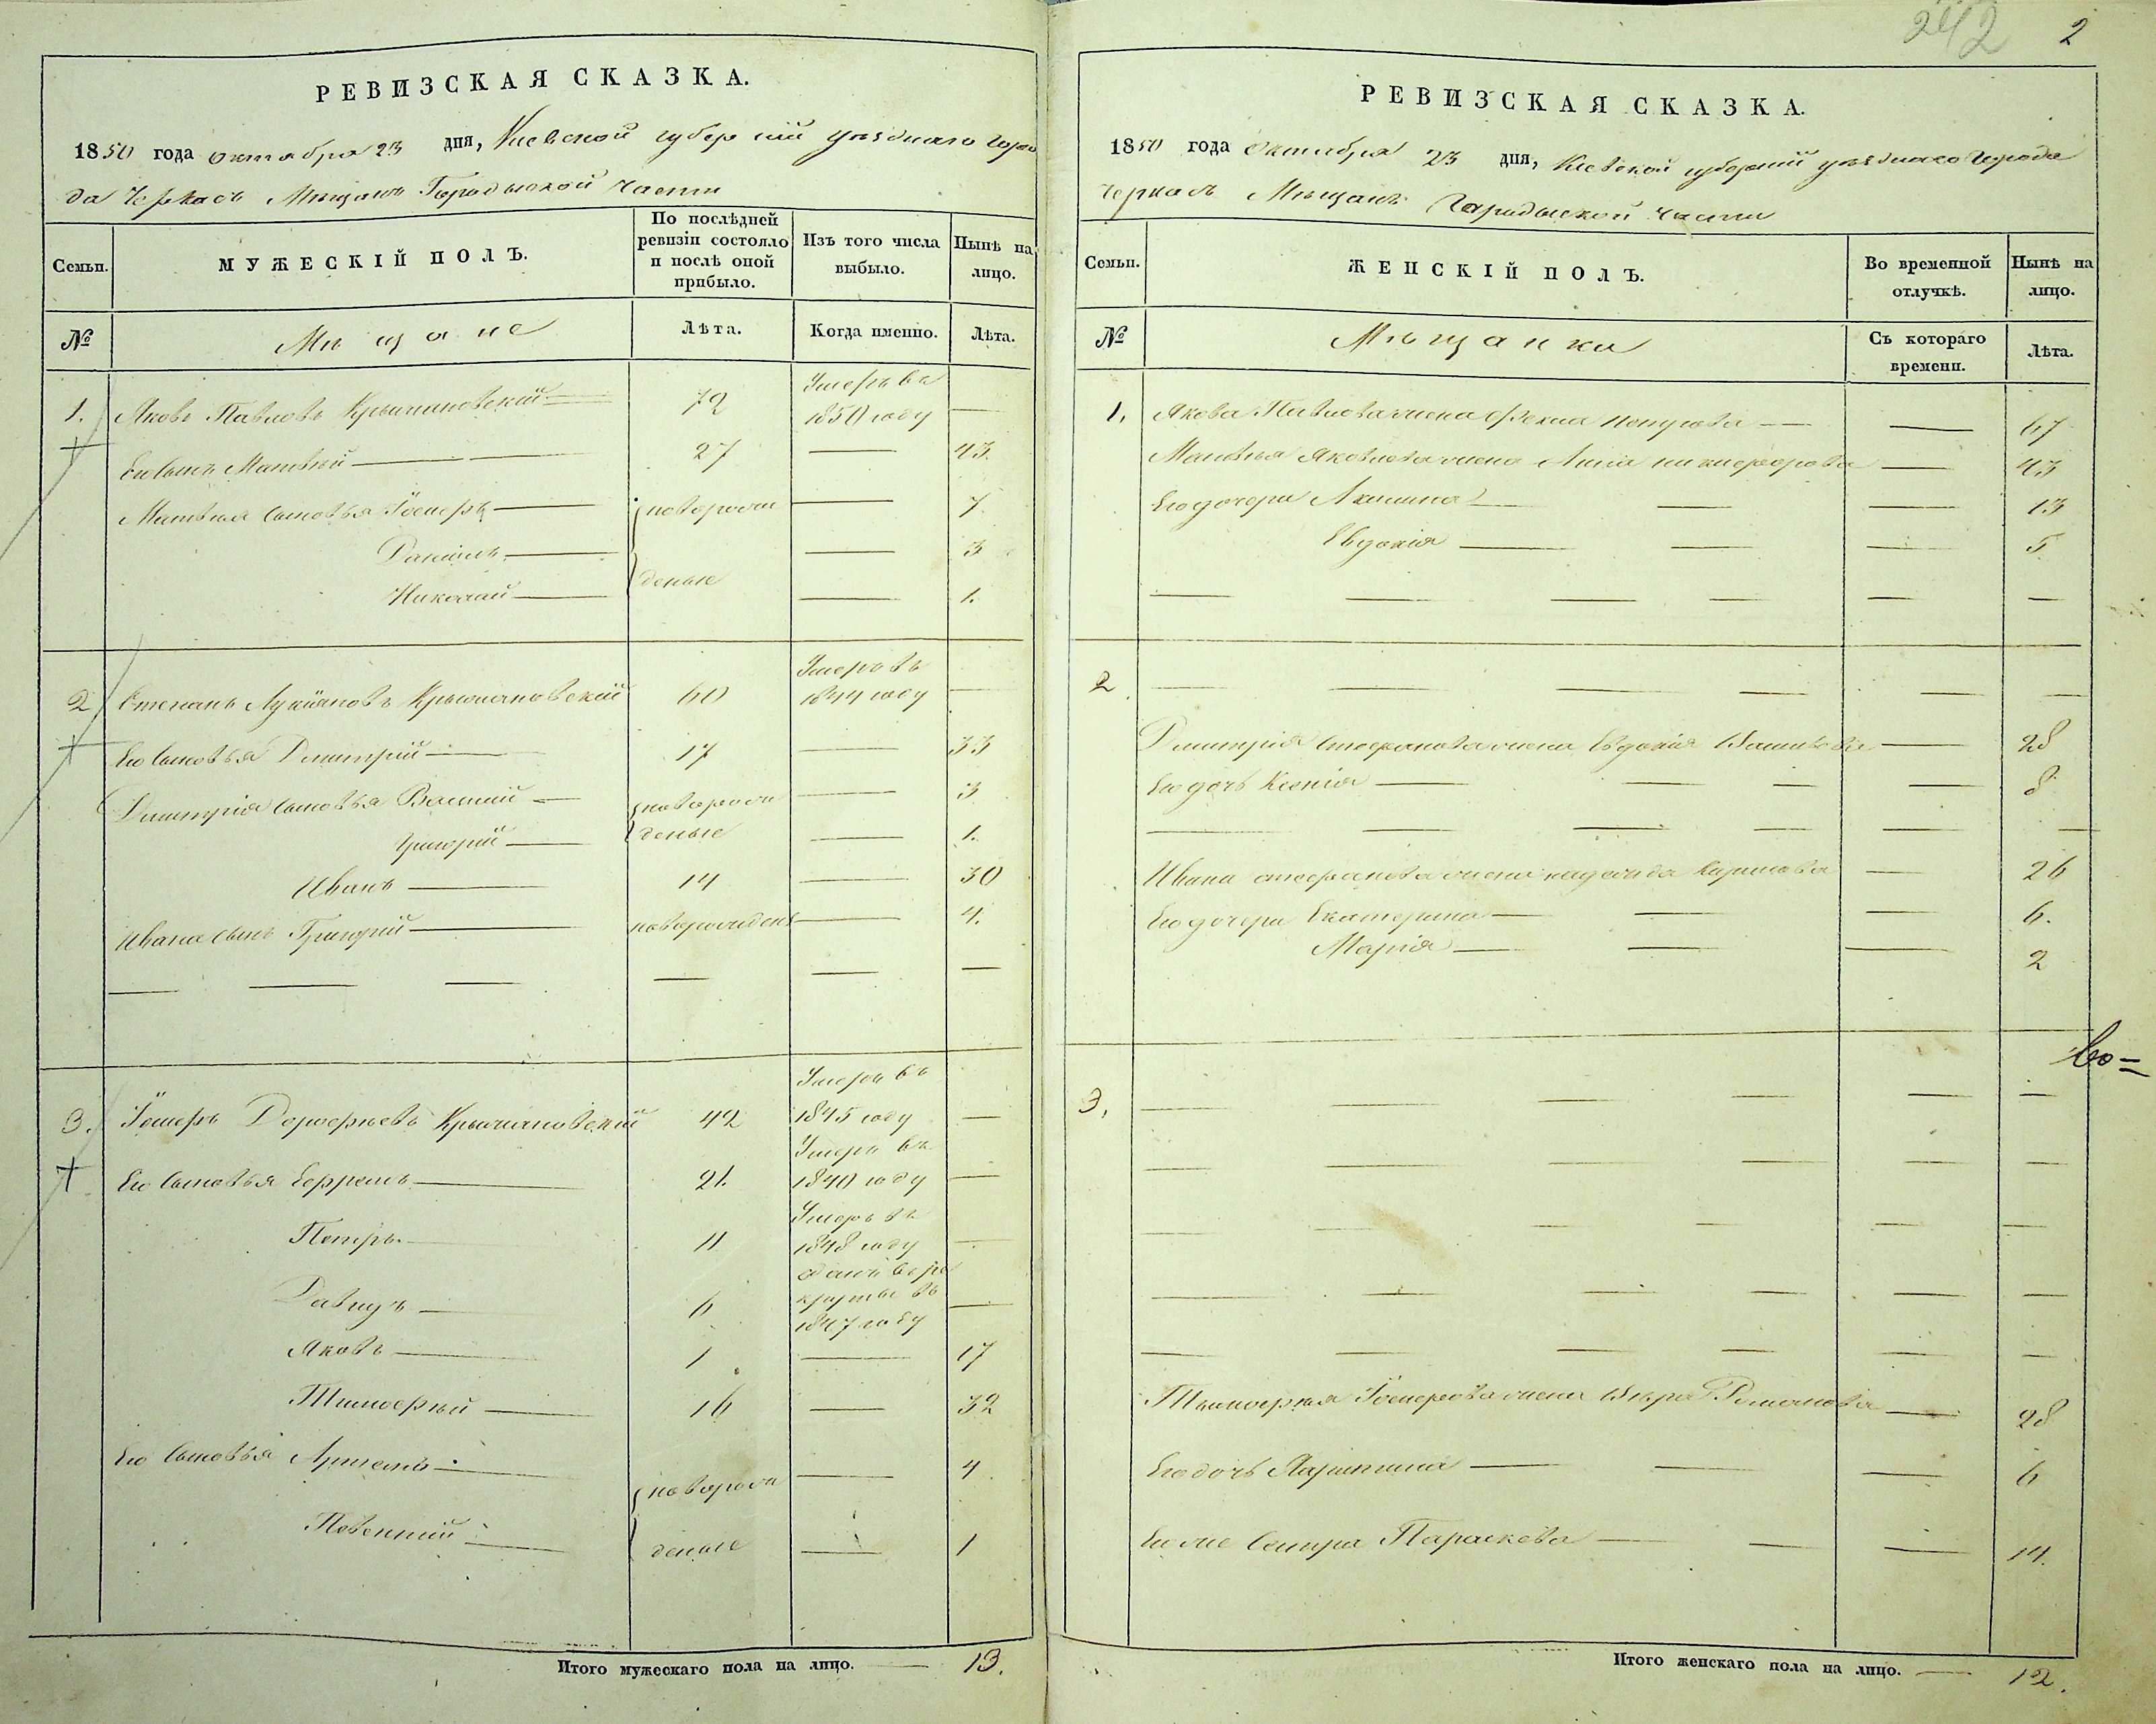 РЕВИЗСКАЯ СКАЗКА.
1850 года октября 23 дня, Киевской губернии уѣзднаго горо
да Черкасъ Мѣщанъ Городиской части
Семьи.
МУЖЕСКІЙ ПОЛЪ.
По послѣдней ревизіи состояло и послѣ оной прибыло.
Изъ того числа выбыло.
Нынѣ на лицо.
№
Мѣщане
Лѣта.
Когда именно.
Лѣта.
1. Яковъ Павловъ Крыжановскій 72 Умеръ въ 1850 году —
Его сынъ Матвѣй 27 — 43
Матвѣя сыновья Іосифъ новорож — 7
Даніилъ — 3
Николай деные — 1.
2 Степанъ Лукіановъ Крыжановскій 60 Умеръ въ 1844 году —
Его сыновья Дмитрій 17 — 33
Дмитрія сыновья Василій новорож — 3
Григорій деные — 1.
Иванъ 14 — 30
Ивана сынъ Григорій новорожденъ — 4.
3. Іосифъ Дорофеевъ Крыжановскій 42 Умеръ въ 1845 году —
Его сыновья Ефремъ 21. Умеръ въ 1840 году —
Петръ 11 Умеръ въ 1848 году —
Давидъ 6 сданъ въ ре круты въ 1847 году —
Яковъ 1 — 17
Тимофей 16 — 32
Его сыновья Артемъ новорож — 4
деные — 1
Итого мужескаго пола на лицо. — 13.
242 2
РЕВИЗСКАЯ СКАЗКА.
1850 года Октября 23 дня, Киевской губерніи уѣзднаго города
Черкасъ Мѣщанъ Городиской части
Семьи.
ЖЕНСКІЙ ПОЛЪ.
Во временной отлучкѣ.
Нынѣ на лицо.
№
Мѣщанки
Съ котораго времени.
Лѣта.
1. Якова Павлова жена Фекла — 67
Матвѣя Яковлева жена Анна Никифорова — 43
Его дочери Акилина — 13
Евдокія — 5
2
Дмитрія Стефанова жена Евдокія — 28
Его дочь Ксенія — 8
Ивана Стефанова жена Надежда Кирилова — 26
Его дочери Екатерина — 6.
Марія — 2
3.
Тимофея Іосифова жена Вѣра Романова — 28
Его дочь — 6
Его же сестра Параскева — 14.
Во=
Итого женскаго пола на лицо. — 12.